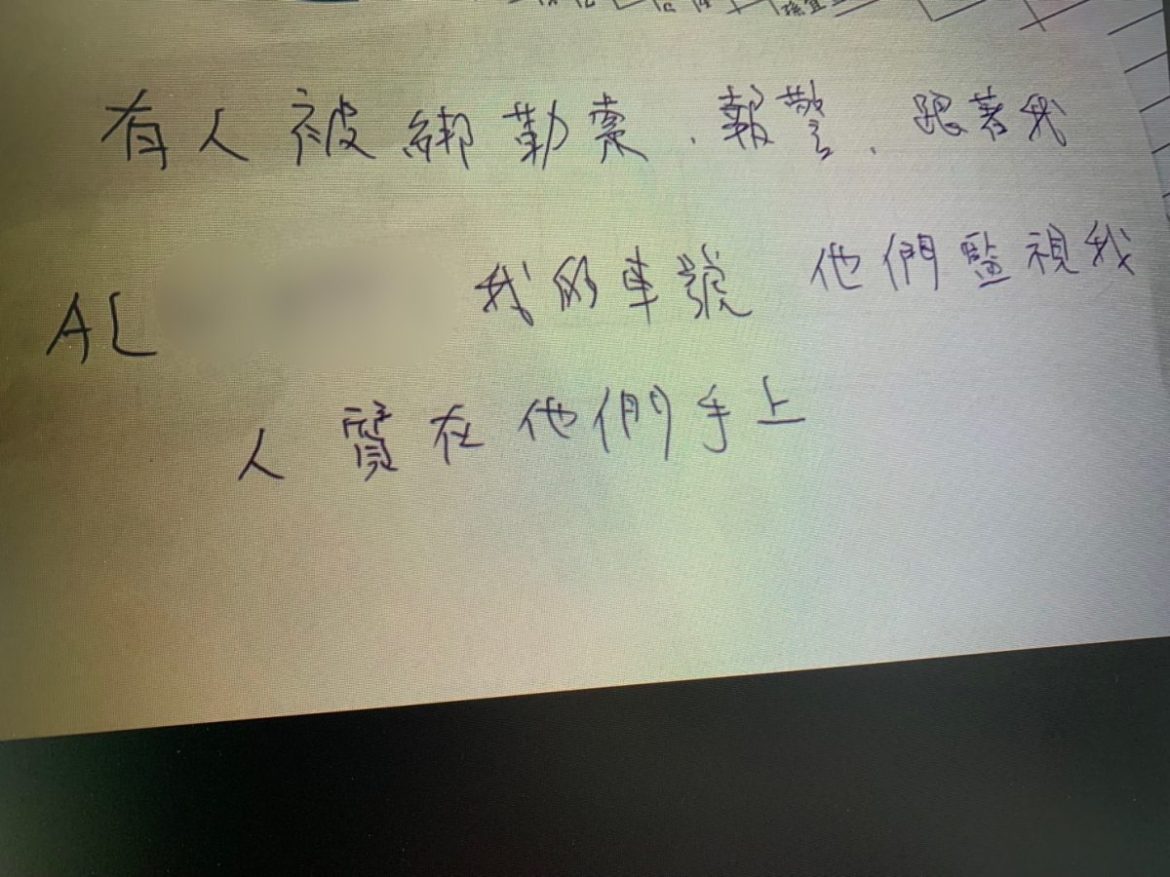 有人被綁勒索.報警.跟著我
AL 我的車號 他們監視我
人質在他們手上